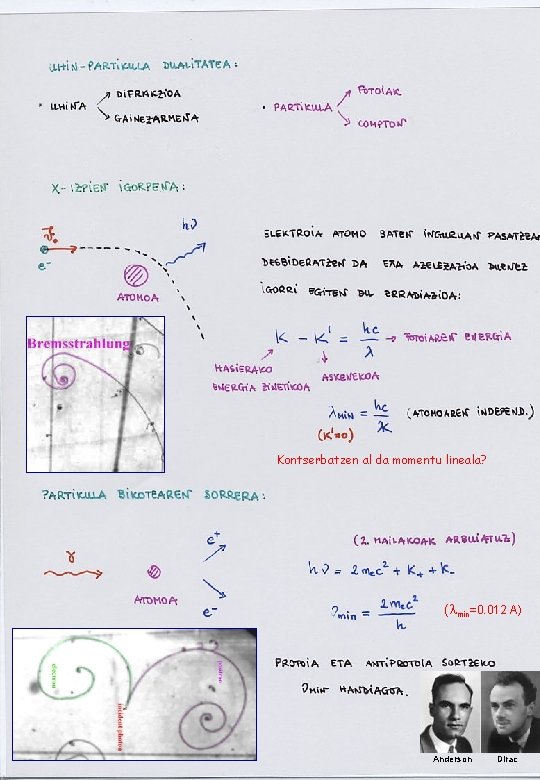 UHIN-PARTIKULA DUALITATEA:
• UHINA
DIFRAKZIOA
GAINEZARMENA
• PARTIKULA
FOTOIAK
COMPTON
X-IZPIEN IGORPENA:
v₀
e⁻
hν
ATOMOA
ELEKTROIA ATOMO BATEN INGURUAN PASATZEAN
DESBIDERATZEN DA ETA AZELERAZIOA DUENEZ
IGORRI EGITEN DU ERRADIAZIOA:
K - K' = hc/λ → FOTOIAREN ENERGIA
HASIERAKO
ENERGIA ZINETIKOA
ASKENEKOA
λMIN = hc/K (ATOMOAREN INDEPEND.)
(K'=0)
Bremsstrahlung
Kontserbatzen al da momentu lineala?
PARTIKULA BIKOTEAREN SORRERA:
γ
ATOMOA
e⁺
e⁻
(2. MAILAKOAK ARBUIATUZ)
hν = 2mₑc² + K₊ + K₋
νmin = 2mₑc²/h
(λmin=0.012 A)
electron
positron
incident photon
PROTOIA ETA ANTIPROTOIA SORTZEKO
νMIN HANDIAGOA.
Anderson
Dirac